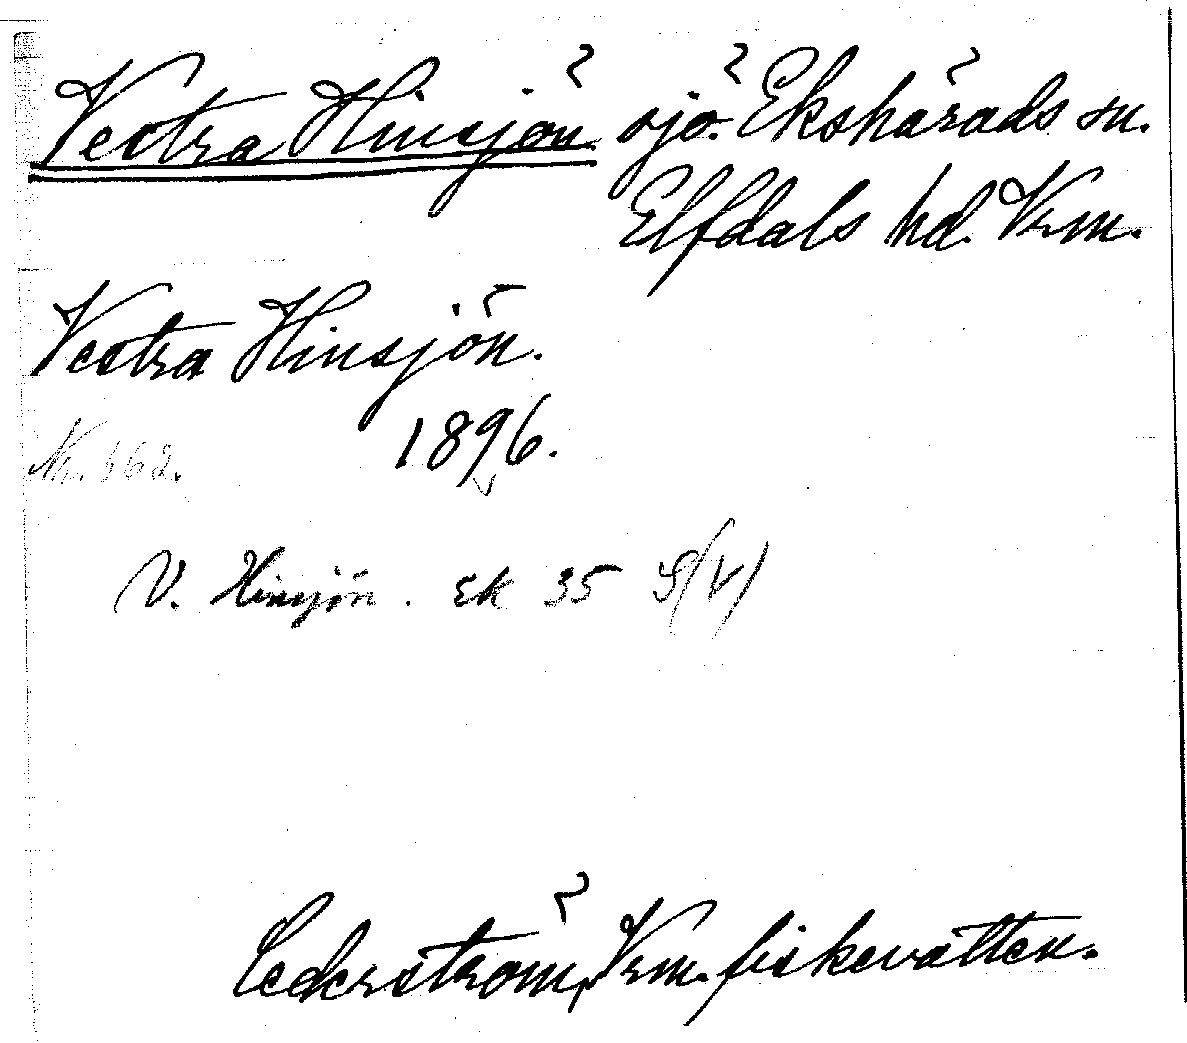 Vestra Hinsjön. sjö. Ekshärads sn.
Elfdals hd. Vrm.
Vestra Hinsjön.
1896.
Nr. 162.
V. Hinsjön. Ek 35 S(V)
Cederström, Vrm. fiskevatten.